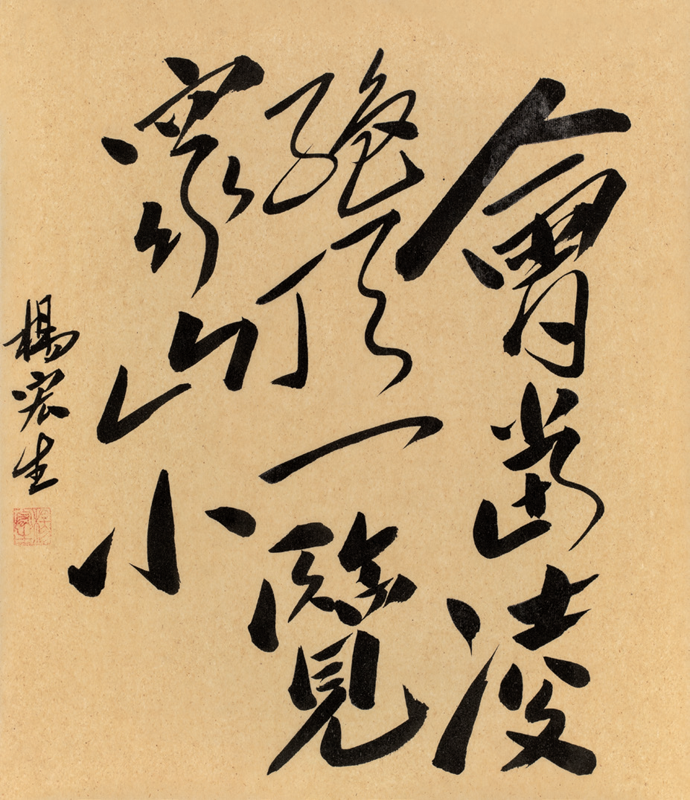 會當凌
絕頂一覽
眾山小
楊宏生